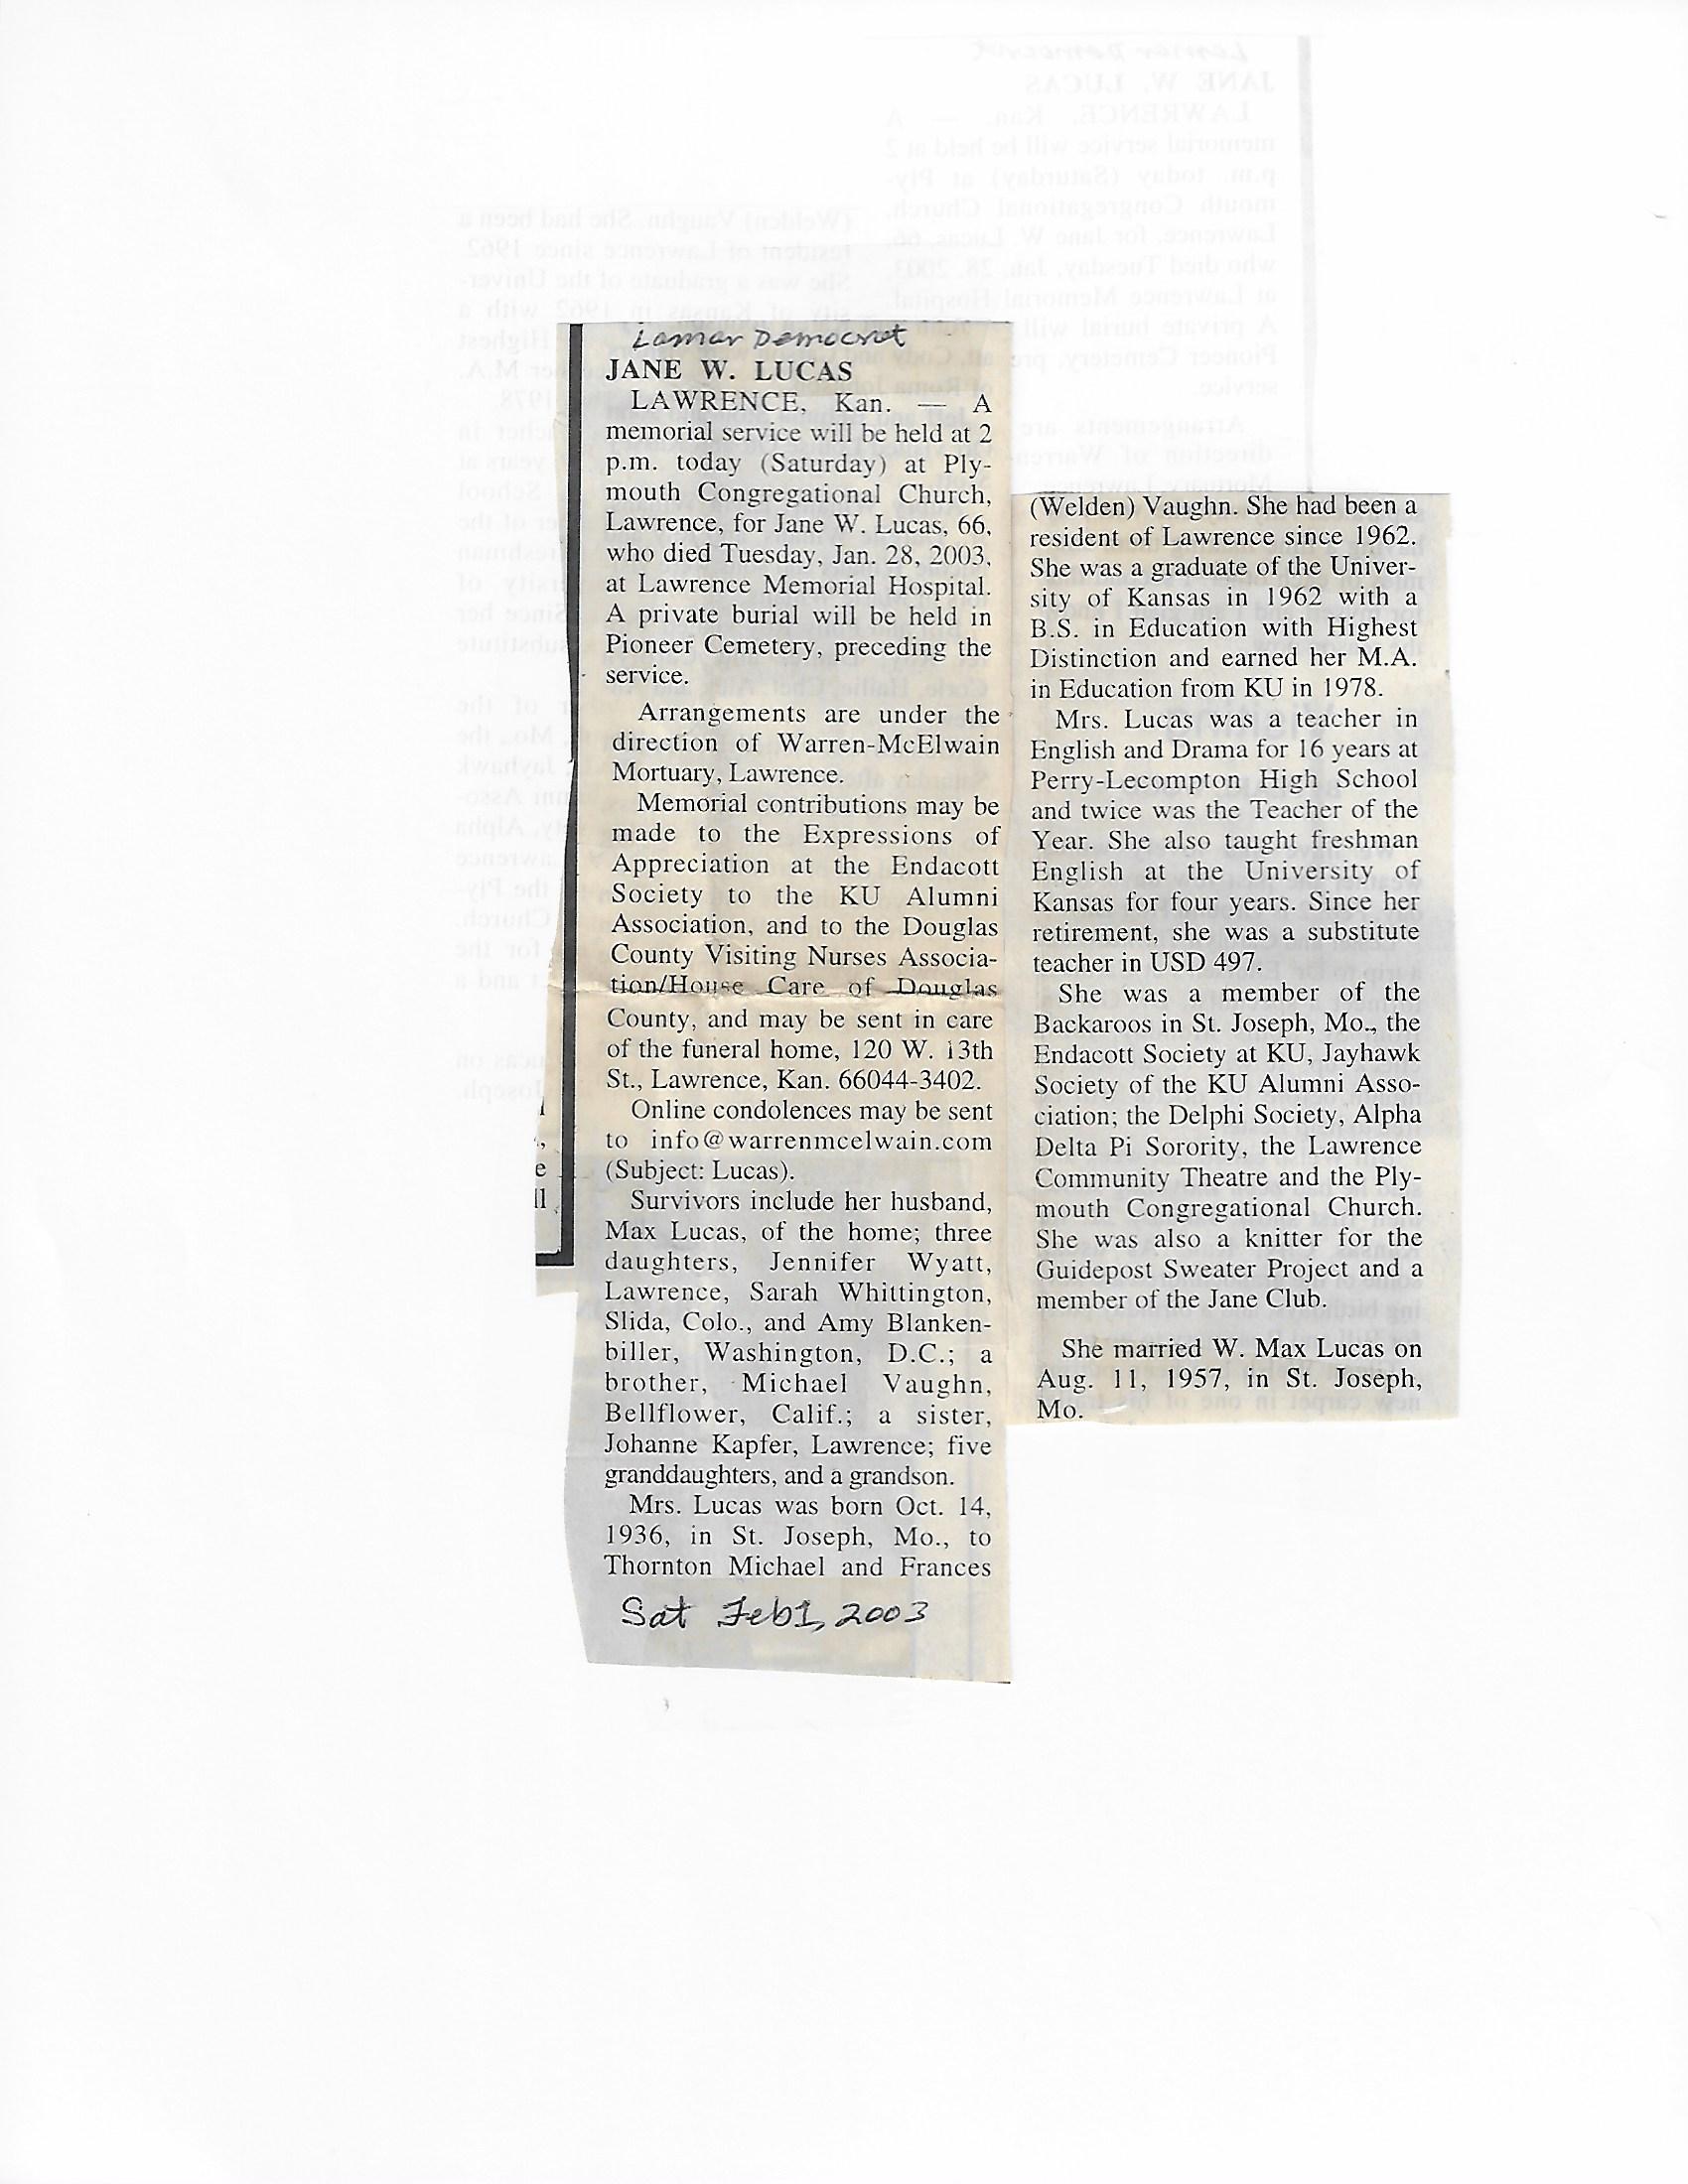 Lamar Democrat
JANE W. LUCAS
LAWRENCE, Kan. — A
memorial service will be held at 2
p.m. today (Saturday) at Ply-
mouth Congregational Church,
Lawrence, for Jane W. Lucas, 66,
who died Tuesday, Jan. 28, 2003,
at Lawrence Memorial Hospital.
A private burial will be held in
Pioneer Cemetery, preceding the
service.
Arrangements are under the
direction of Warren-McElwain
Mortuary, Lawrence.
Memorial contributions may be
made to the Expressions of
Appreciation at the Endacott
Society to the KU Alumni
Association, and to the Douglas
County Visiting Nurses Associa-
tion/House Care of Douglas
County, and may be sent in care
of the funeral home, 120 W. 13th
St., Lawrence, Kan. 66044-3402.
Online condolences may be sent
to info@warrenmcelwain.com
(Subject: Lucas).
Survivors include her husband,
Max Lucas, of the home; three
daughters, Jennifer Wyatt,
Lawrence, Sarah Whittington,
Slida, Colo., and Amy Blanken-
biller, Washington, D.C.; a
brother, Michael Vaughn,
Bellflower, Calif.; a sister,
Johanne Kapfer, Lawrence; five
granddaughters, and a grandson.
Mrs. Lucas was born Oct. 14,
1936, in St. Joseph, Mo., to
Thornton Michael and Frances
Sat Feb 1, 2003
(Welden) Vaughn. She had been a
resident of Lawrence since 1962.
She was a graduate of the Univer-
sity of Kansas in 1962 with a
B.S. in Education with Highest
Distinction and earned her M.A.
in Education from KU in 1978.
Mrs. Lucas was a teacher in
English and Drama for 16 years at
Perry-Lecompton High School
and twice was the Teacher of the
Year. She also taught freshman
English at the University of
Kansas for four years. Since her
retirement, she was a substitute
teacher in USD 497.
She was a member of the
Backaroos in St. Joseph, Mo., the
Endacott Society at KU, Jayhawk
Society of the KU Alumni Asso-
ciation; the Delphi Society, Alpha
Delta Pi Sorority, the Lawrence
Community Theatre and the Ply-
mouth Congregational Church.
She was also a knitter for the
Guidepost Sweater Project and a
member of the Jane Club.
She married W. Max Lucas on
Aug. 11, 1957, in St. Joseph,
Mo.